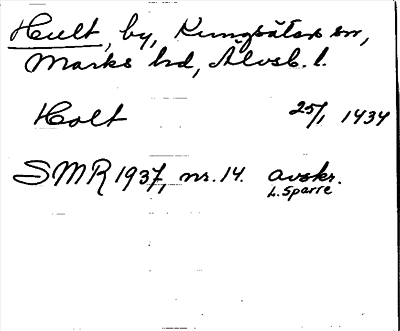 Hult, by, Kungsäters sn,
Marks hd, Älvsb. l.
Holt 25/1 1434
SMR 1937, nr. 14. avskr.
L. Sparre